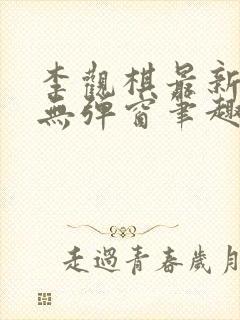 李觀棋最新
無彈窗筆趣
走過青春歲月